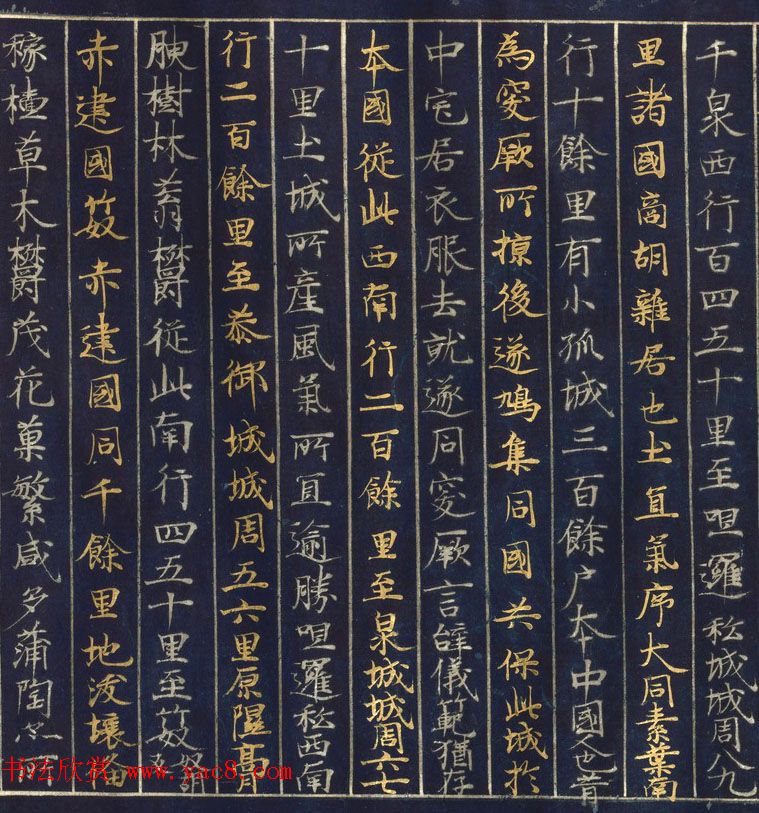 千泉西行百四五十里至呾邏私城城周八九
里諸國商胡雜居也土冝氣序大同素葉南
行十餘里有小孤城三百餘户本中國人也昔
為突厥所掠後遂鳩集同國共保此城於
中宅居衣服去就遂同突厥言辭儀範猶存
本國從此西南行二百餘里至泉城城周六七
十里土城所產風氣所冝逾勝呾邏私西南
行二百餘里至恭御城城周五六里原隰膏
腴樹林蓊欝從此南行四五十里至笯
赤建國笯赤建國同千餘里地沃壤備
稼穡草木欝茂花菓繁盛多蒲陶
书法欣赏 www.yac8.com